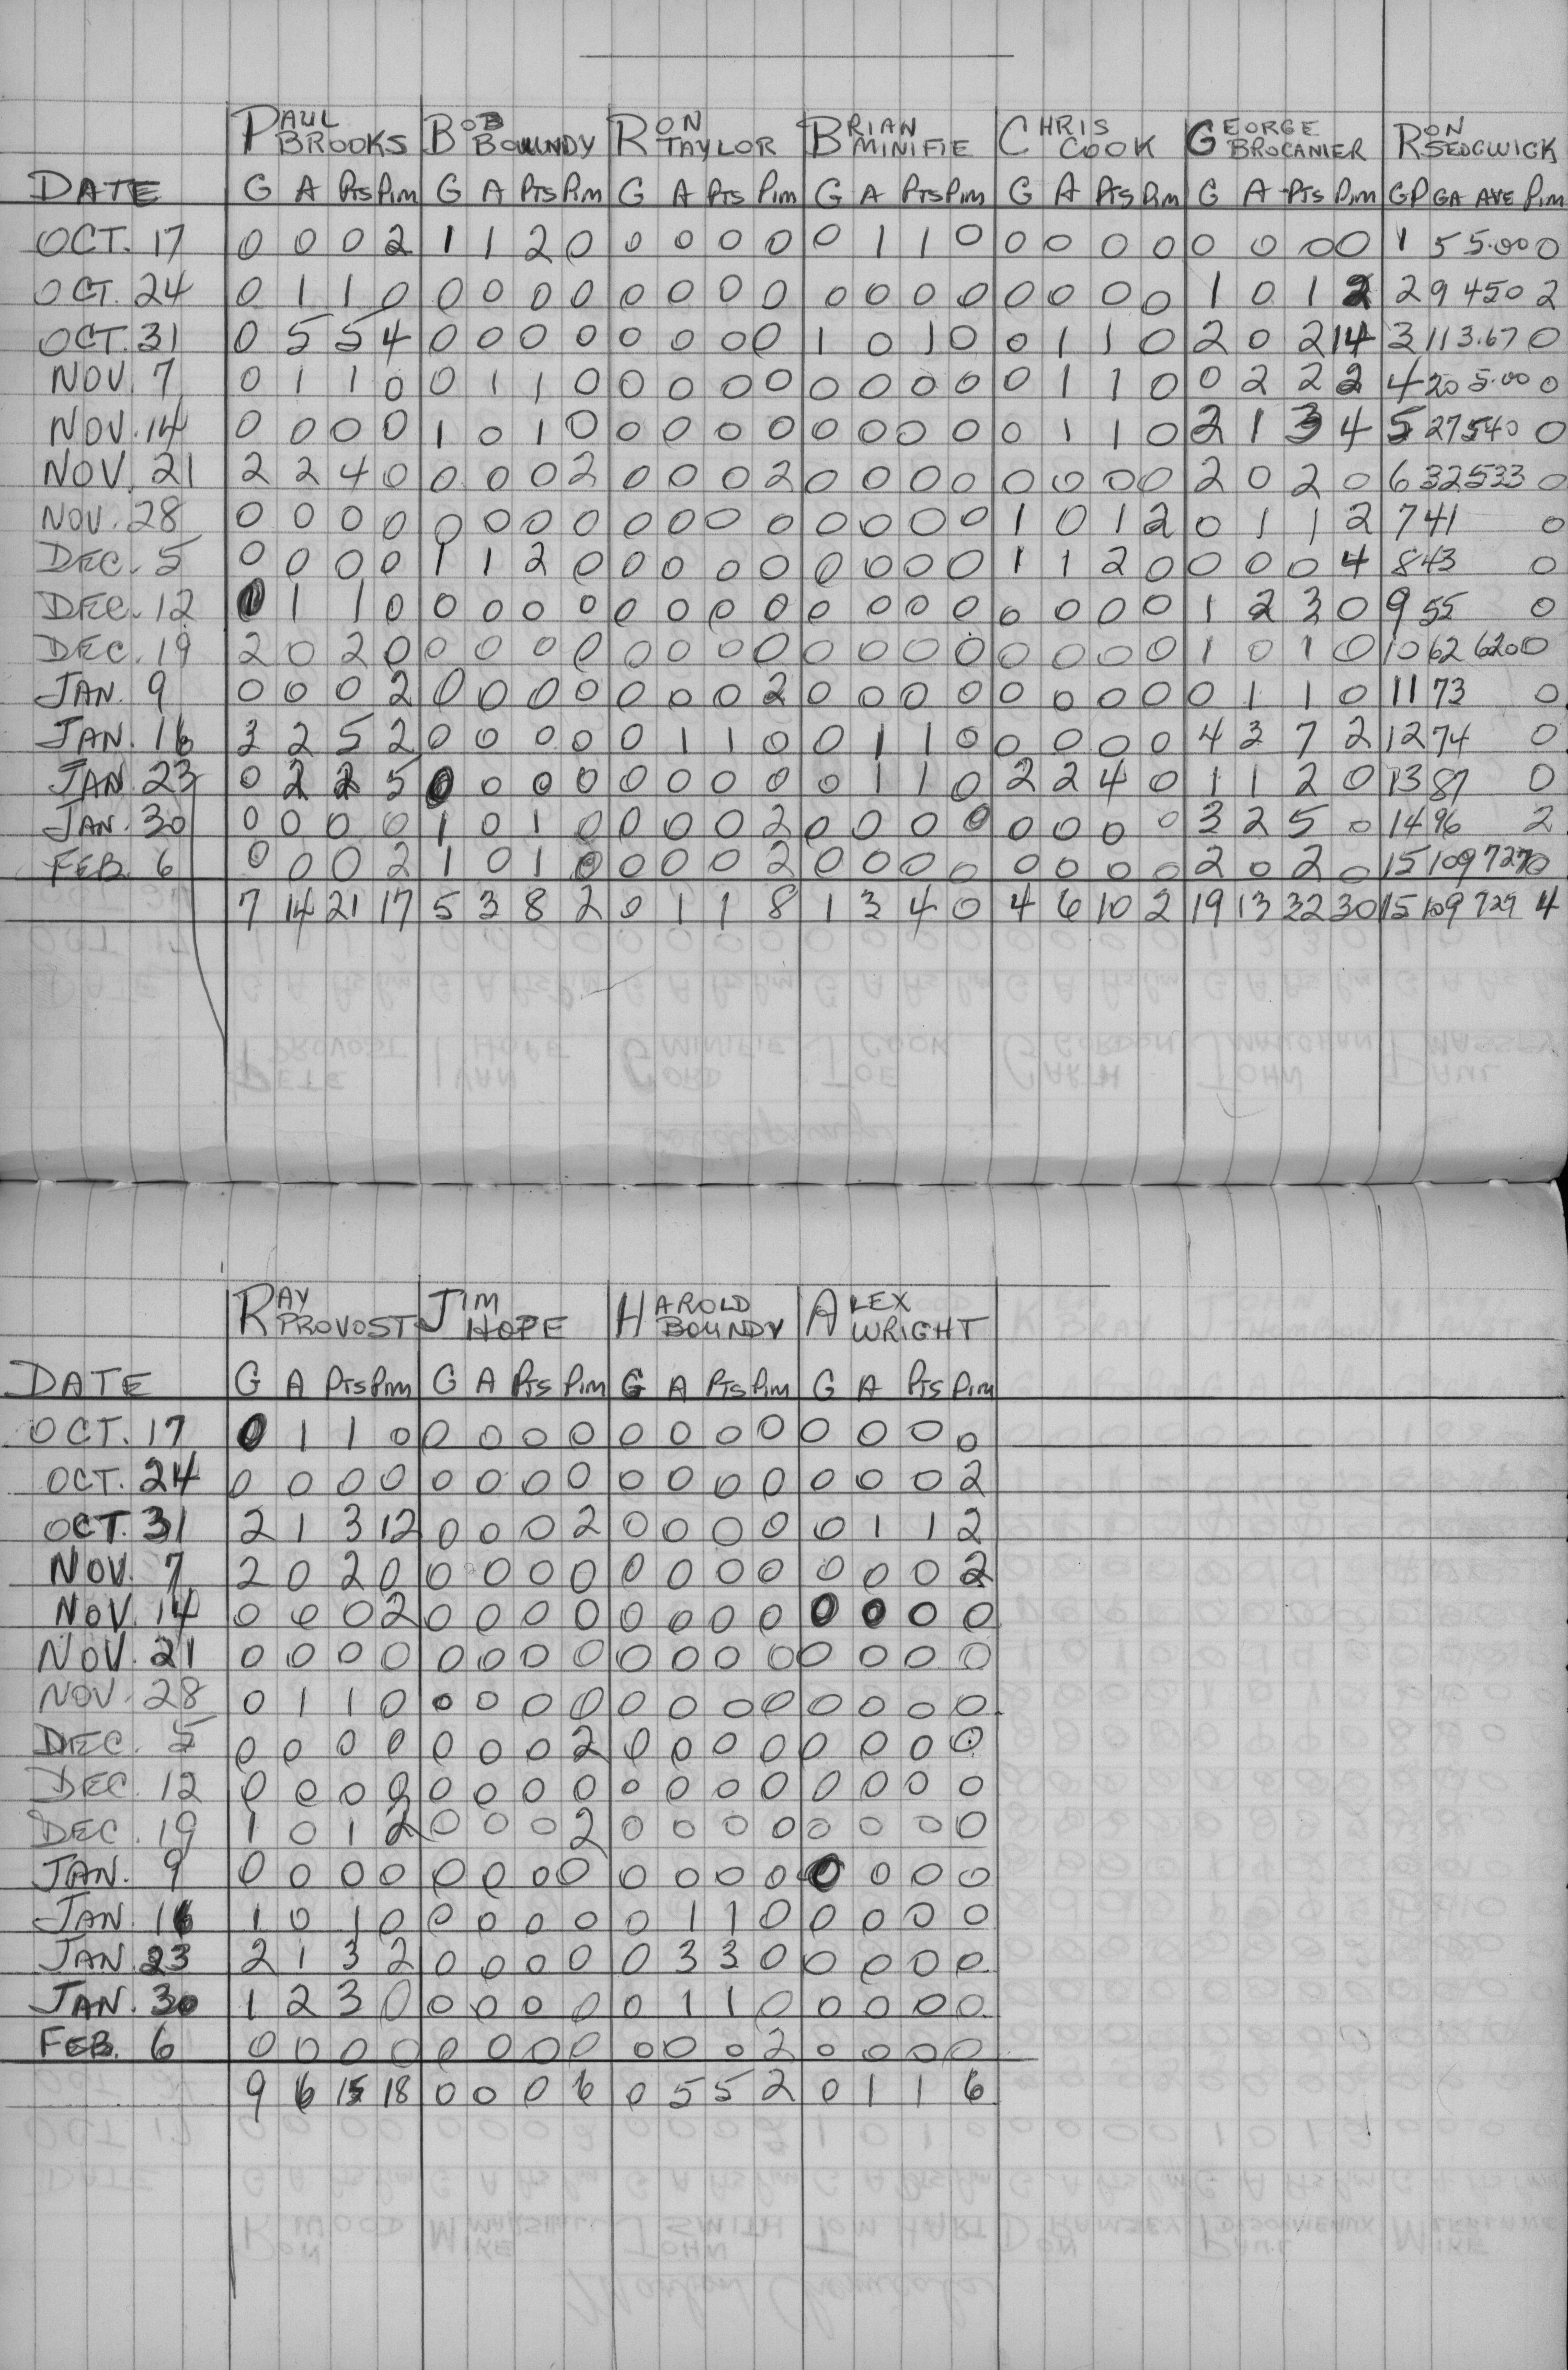 PAUL BROOKS BOB BOUNDY RON TAYLOR BRIAN MINIFIE CHRIS COOK GEORGE BROCANIER RON SEDGWICK
DATE G A Pts Pim G A Pts Pim G A Pts Pim G A Pts Pim G A Pts Pim G A Pts Pim GP GA AVE Pim
OCT. 17 0 0 0 2 1 1 2 0 0 0 0 0 0 1 1 0 0 0 0 0 0 0 0 0 1 5 5.00 0
OCT. 24 0 1 1 0 0 0 0 0 0 0 0 0 0 0 0 0 0 0 0 0 1 0 1 2 2 9 450 2
OCT. 31 0 5 5 4 0 0 0 0 0 0 0 0 1 0 1 0 0 1 1 0 2 0 2 14 3 11 3.67 0
NOV. 7 0 1 1 0 0 1 1 0 0 0 0 0 0 0 0 0 0 1 1 0 0 2 2 2 4 20 5.00 0
NOV. 14 0 0 0 0 1 0 1 0 0 0 0 0 0 0 0 0 0 1 1 0 2 1 3 4 5 27 540 0
NOV. 21 2 2 4 0 0 0 0 2 0 0 0 2 0 0 0 0 0 0 0 0 2 0 2 0 6 32 533 0
NOV. 28 0 0 0 0 0 0 0 0 0 0 0 0 0 0 0 0 1 0 1 2 0 1 1 2 7 41 0
DEC. 5 0 0 0 0 1 1 2 0 0 0 0 0 0 0 0 0 1 1 2 0 0 0 0 4 8 43 0
DEC. 12 0 1 1 0 0 0 0 0 0 0 0 0 0 0 0 0 0 0 0 0 1 2 3 0 9 55 0
DEC. 19 2 0 2 0 0 0 0 0 0 0 0 0 0 0 0 0 0 0 0 0 1 0 1 0 10 62 620 0
JAN. 9 0 0 0 2 0 0 0 0 0 0 0 2 0 0 0 0 0 0 0 0 0 1 1 0 11 73 0
JAN. 16 3 2 5 2 0 0 0 0 0 1 1 0 0 1 1 0 0 0 0 0 4 3 7 2 12 74 0
JAN. 23 0 2 2 5 0 0 0 0 0 0 0 0 0 1 1 0 2 2 4 0 1 1 2 0 13 87 0
JAN. 30 0 0 0 0 1 0 1 0 0 0 0 2 0 0 0 0 0 0 0 0 3 2 5 0 14 96 2
FEB. 6 0 0 0 2 1 0 1 0 0 0 0 2 0 0 0 0 0 0 0 0 2 0 2 0 15 109 727 0
7 14 21 17 5 3 8 2 0 1 1 8 1 3 4 0 4 6 10 2 19 13 32 30 15 109 727 4
RAY PROVOST JIM HOPE HAROLD BOUNDY ALEX WRIGHT
DATE G A Pts Pim G A Pts Pim G A Pts Pim G A Pts Pim
OCT. 17 0 1 1 0 0 0 0 0 0 0 0 0 0 0 0 0
OCT. 24 0 0 0 0 0 0 0 0 0 0 0 0 0 0 0 2
OCT. 31 2 1 3 12 0 0 0 2 0 0 0 0 0 1 1 2
NOV. 7 2 0 2 0 0 0 0 0 0 0 0 0 0 0 0 2
NOV. 14 0 0 0 2 0 0 0 0 0 0 0 0 0 0 0 0
NOV. 21 0 0 0 0 0 0 0 0 0 0 0 0 0 0 0 0
NOV. 28 0 1 1 0 0 0 0 0 0 0 0 0 0 0 0 0
DEC. 5 0 0 0 0 0 0 0 2 0 0 0 0 0 0 0 0
DEC. 12 0 0 0 0 0 0 0 0 0 0 0 0 0 0 0
DEC. 19 1 0 1 2 0 0 0 2 0 0 0 0 0 0 0 0
JAN. 9 0 0 0 0 0 0 0 0 0 0 0 0 0 0 0 0
JAN. 16 1 0 1 0 0 0 0 0 0 1 1 0 0 0 0 0
JAN. 23 2 1 3 2 0 0 0 0 0 3 3 0 0 0 0 0
JAN. 30 1 2 3 0 0 0 0 0 0 1 1 0 0 0 0 0
FEB. 6 0 0 0 0 0 0 0 0 0 0 0 2 0 0 0 0
9 6 15 18 0 0 0 6 0 5 5 2 0 1 1 6